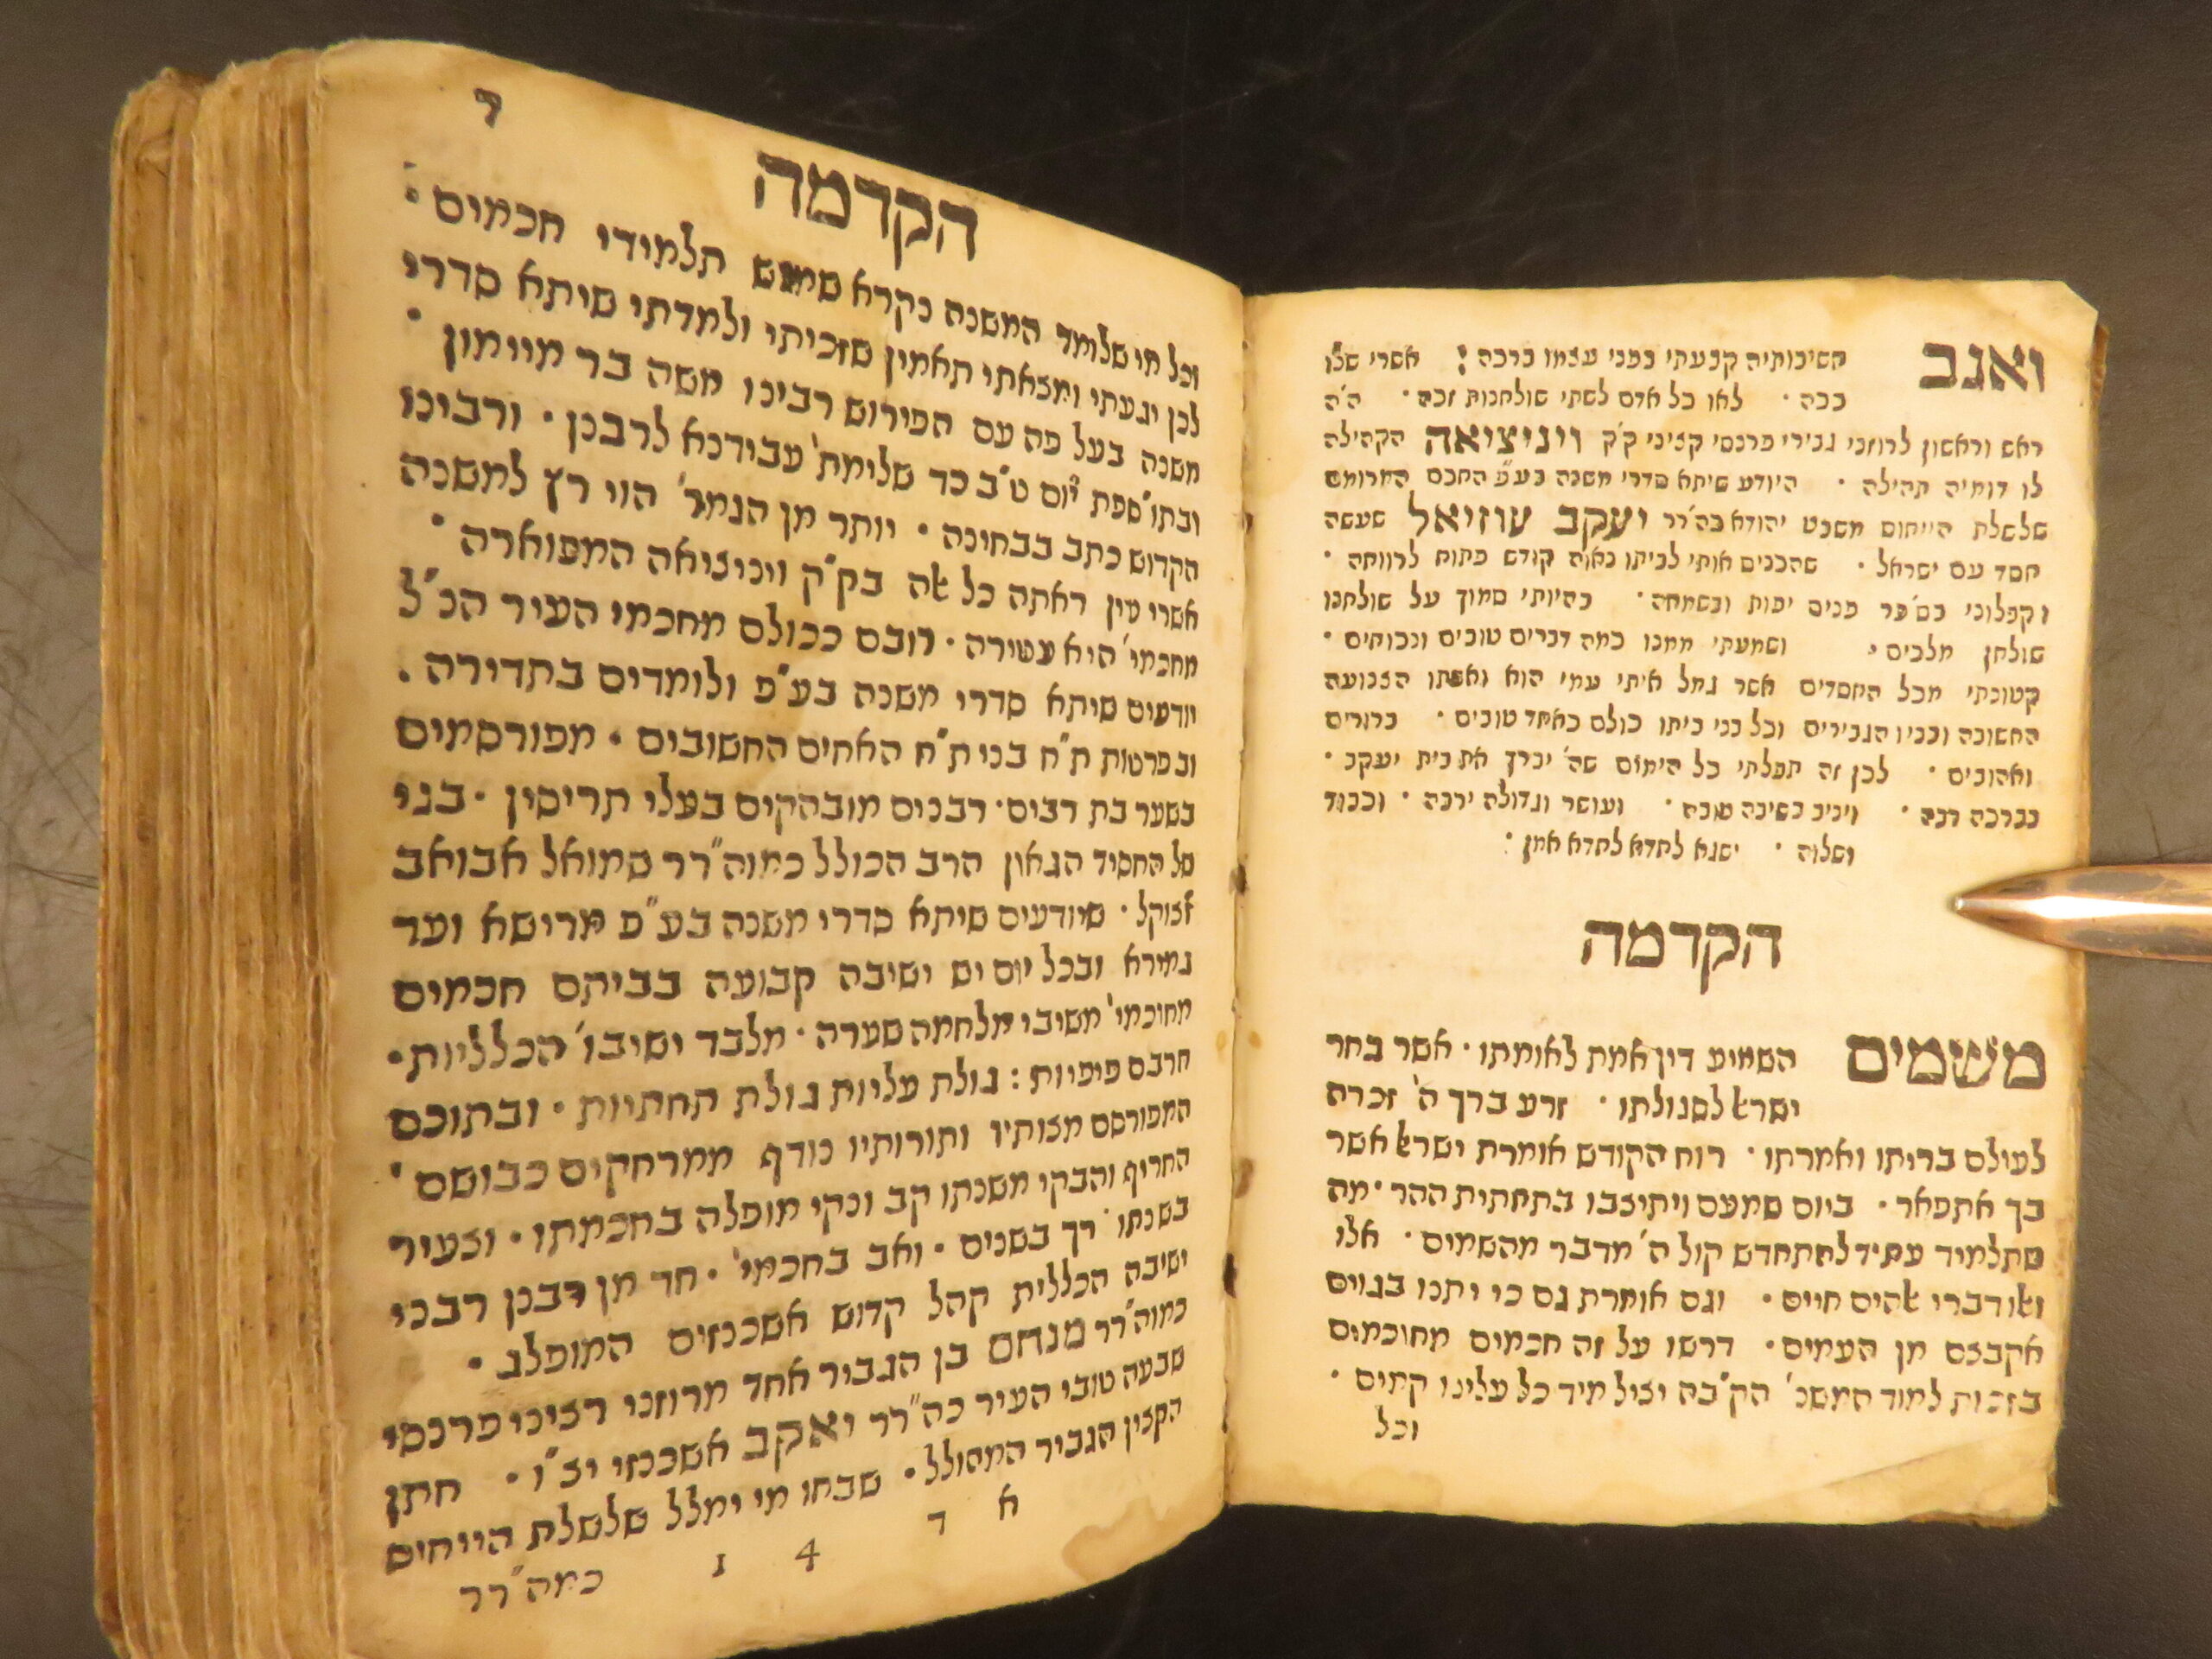 ואגב חשיבותיה קבעתי בפני עצמו ברכה : אשרי שלו
ככה · לאו כל אדם לשתי שולחנות זכה · ה'ה
ראש וראשון לרוזני גבירי פרנסי קציני ק'ק וויניציאה הקהילה
לו דומיה תהילה · היודע שיתא סדרי משנה בע"פ החכם המרומם
שלשלת הייחום משבט יהודא כה'רר יעקב עוזיאל שעשה
חסד עם ישראל · שהכניס אותי לביתו נאוה קודש פתוח לרווחה ·
וקבלוני בס'פר פנים יפות ובשמחה · בהיותי סמוך על שולחנו
שולחן מלכים · ושמעתי ממנו כמה דברים טובים ונכוחים ·
קטונתי מכל החסדים אשר גמל איתי עמי הוא ואשתו הצנועה
החשובה ובניו הגבירים וכל בני ביתו כולם כאחד טובים · ברורים
ואהובים · לכן זה תפלתי כל הימים שה' יברך את בית יעקב ·
בברכה רבה · ויניב בשיבה טובה · ועושר וגדולה ירבה · וכבוד
ושלוה · ישגא לחדא לחדא אמן :
הקדמה
משמים השמיע דין אמת לאומתו · אשר בחר
ישראל לסגולתו · זרע ברך ה' זכרה
לעולם בריתו ואמרתו · רוח הקודש אומרת ישראל אשר
בך אתפאר · ביום שמעם ויתיצבו בתחתית ההר · מה
שתלמיד עתיד לחתחדש קול ה' מדבר מהשמים · אלו
ואלו דברי אלהים חיים · וגם אומרת גם כי יתנו בגוים
אקבצם מן העמים · דרשו על זה חכמים מחוכמים
בזכות למוד המשנ' הק"בה יציל מיד כל עלינו קמים ·
וכל
ד
הקדמה
וכל מי שלומד המשנה נקרא שמש תלמידי חכמים :
לכן יגעתי ומצאתי תאמין שזכיתי ולמדתי שיתא סדרי
משנה בעל פה עם הפירוש רבינו משה בר מיימון ·
ובתו'ספת י'ום ט"ב כד שלימת' עבידנא לרבנן · ורבינו
הקדוש כתב בבחינה · יותר מן הגמר' הוי רץ למשנה
אשרי עין ראתה כל אלה בק"ק וויניציאה המפוארה ·
מחכמי' היא עטירה · רובם ככולם מחכמי העיר הנ"ל
יודעים שיתא סדרי משנה בע"פ ולומדים בתדירה .
ובפרטות ת"ח בני ת"ח האחים החשובים · מפורסמים
בשער בת רבים · רבנים מובהקים בעלי תריסין · בני
של החסיד הגאון הרב הכולל כמוה"רר שמואל אבואב
זצוקל · שיודעים שיתא סדרי משנה בע"פ מרישא ועד
גמירא ובכל יום יש ישיבה קבועה בביתם חכמים
מחוכמי' משיבי מלחמה שערה · מלבד ישיבו' הכלליות ·
חרבם פיפיות : גולת עליות גולת תחתיות · ובתוכם
המפורסם מצותיו ותורותיו נודף ממרחקים כבושם ·
החריף והבקי משנתו קב ונקי מופלה בחכמתו · וצעיר
בשנתו · רך בשנים · ואב בחכמי' · חד מן דבנן רבני
ישיבה הכללית קהל קדוש אשכנזים המופלג ·
כמוה"רר מנחם בן הגביר אחד מרוזני רציני פרנסי
שבעה טובי העיר כה"רר יאקב אשכנזי יצ"ו · חתן
הקצין הגביר המהולל · שבחו מי ימלל שלשלת הייחים
א ד 4 1
כמה"רר